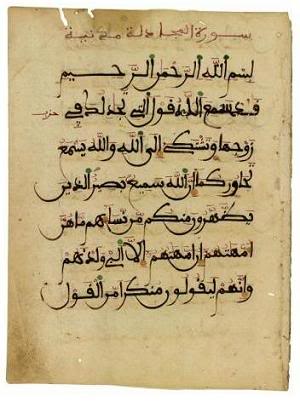 سورة المجادلة مدنية
بسم الله الرحمن الرحيم
قد سمع الله قول التي تجدلك في
حزب
زوجها وتشتكي إلى الله والله يسمع
تحاوركما إن الله سميع بصير الذين
يظهرون منكم من نسائهم ما هن
أمهتهم إن أمهتهم إلا الي ولدنهم
وإنهم ليقولون منكرا من القول